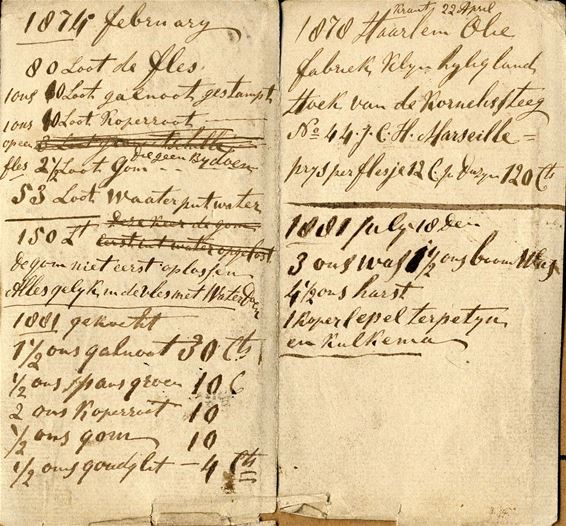 1874 february
80 Loot de fles
1 ons 10 Loot galnoot gestampt
1 ons 10 Loot Koperroot
fles 2 1/2 Loot Gom
53 Loot Waater putwater
150 Lt
de gom niet eerst oplossen
Alles gelyk in de vles met Water
1881 gekocht
1 1/2 ons galnoot 30 Cts
1/2 ons spans groen 10 C
2 ons Koperroot 10
1/2 ons gom 10
1/2 ons goudglit - 4 Cts
Krant 22 April
1878 Haarlem Olie
fabriek Klyn hylig land
Hoek van de Kornelissteeg
No 44. J. C. H. Marseille =
prys per flesje 12 C. p. Dozyn 120 Cts
1881 july 18 den
3 ons was 1 1/2 ons boom Was
4 1/2 ons harst
1 koper lepel terpetyn
en Kulkema